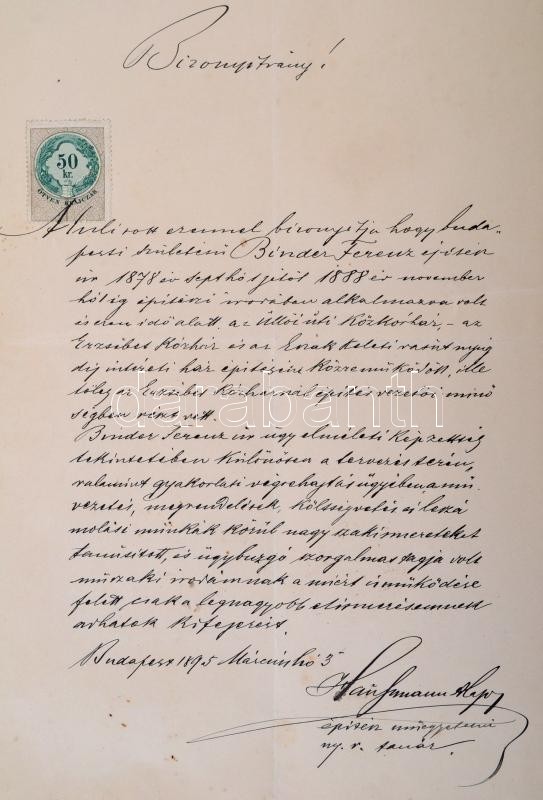 Bizonyitvány!
50
kr.
ÖTVEN KRAJCZÁR
Alulirott ezennel bizonyitja hogy buda-
pesti születésü Binder Ferenz épitész
ur 1878 év septhó 1jétöl 1888 év november
hóig épitészi irodában alkalmazva volt
és ezen idö alatt az Üllöi úti Közkórház, – az
Erzsébet Kórház és az Északkeleti vasút nyug
dij intézeti ház épitésére közremüködött, ille
töleg az Erzsébet Kórháznál épitésvezetöi minö
ségben részt vett.
Binder Ferenz úr úgy elméleti képzettség
tekintetében különösen a tervezés terén,
valamint gyakorlati végrehajtás ügyében, a mü-
vezetés, megrendelések, költségvetés és leszá
molási munkák körül nagy szakismereteket
tanúsitott, és ügybuzgó szorgalmas tagja volt
müszaki irodámnak a miért is müködése
felett csak a legnagyobb elismerésemnek
adhatok kifejezést.
Budapest 1895 Márcziushó 5
Hauszmann Alajos
épitész müegyetemi
ny. r. tanár.
darabanth